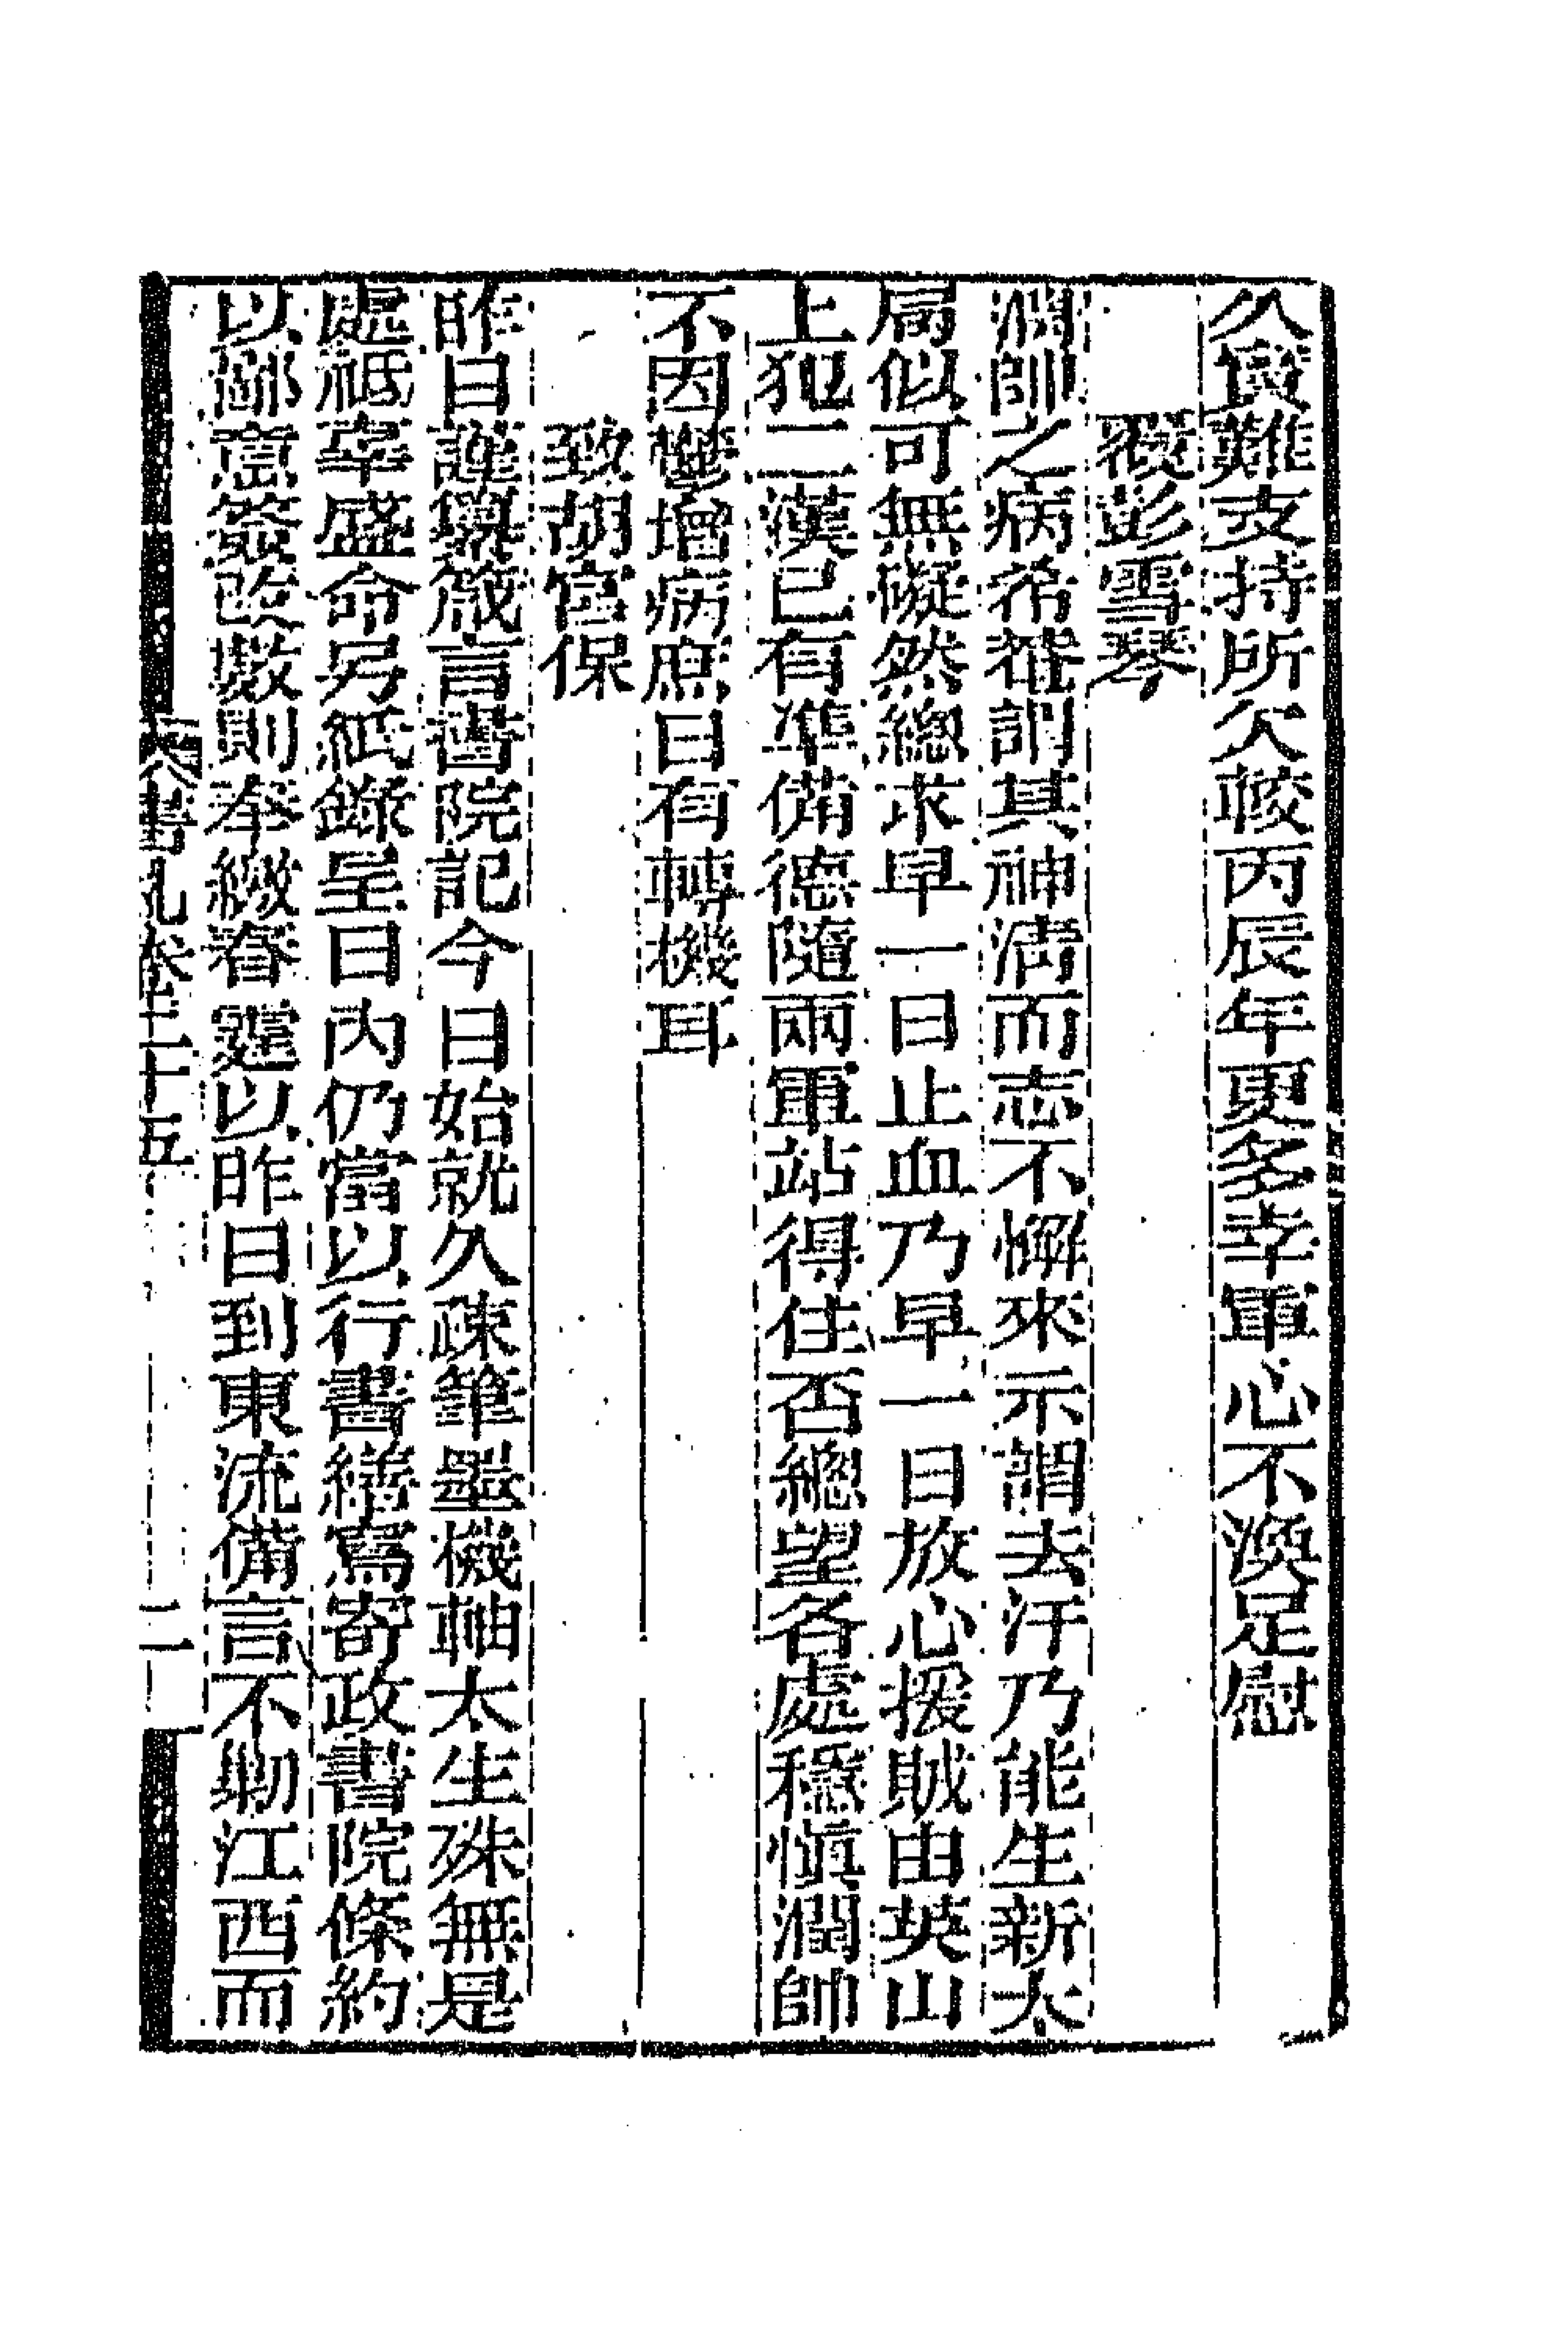 久良難支持所欠較丙辰年更多幸軍心不渙足慰
覆彭雪琴
潤帥之病希菴謂其神清而志不懈來示謂去汙乃能生新大
局似可無礙然總求早一日止血乃早一日放心援賊由英山
上犯二漢已有準備德隨兩軍站得住否總望各處穩慎潤帥
不因鬱增病庶日有轉機耳
致胡宮保
昨日謹撰箴言書院記今日始就久疎筆墨機軸太生殊無是
處祗率盛命另紙錄呈日內仍當以行書繕寫寄政書院條約
以鄙意簽改數則奉繳春霆以昨日到東流備言不勦江西而
書札卷二十五
二